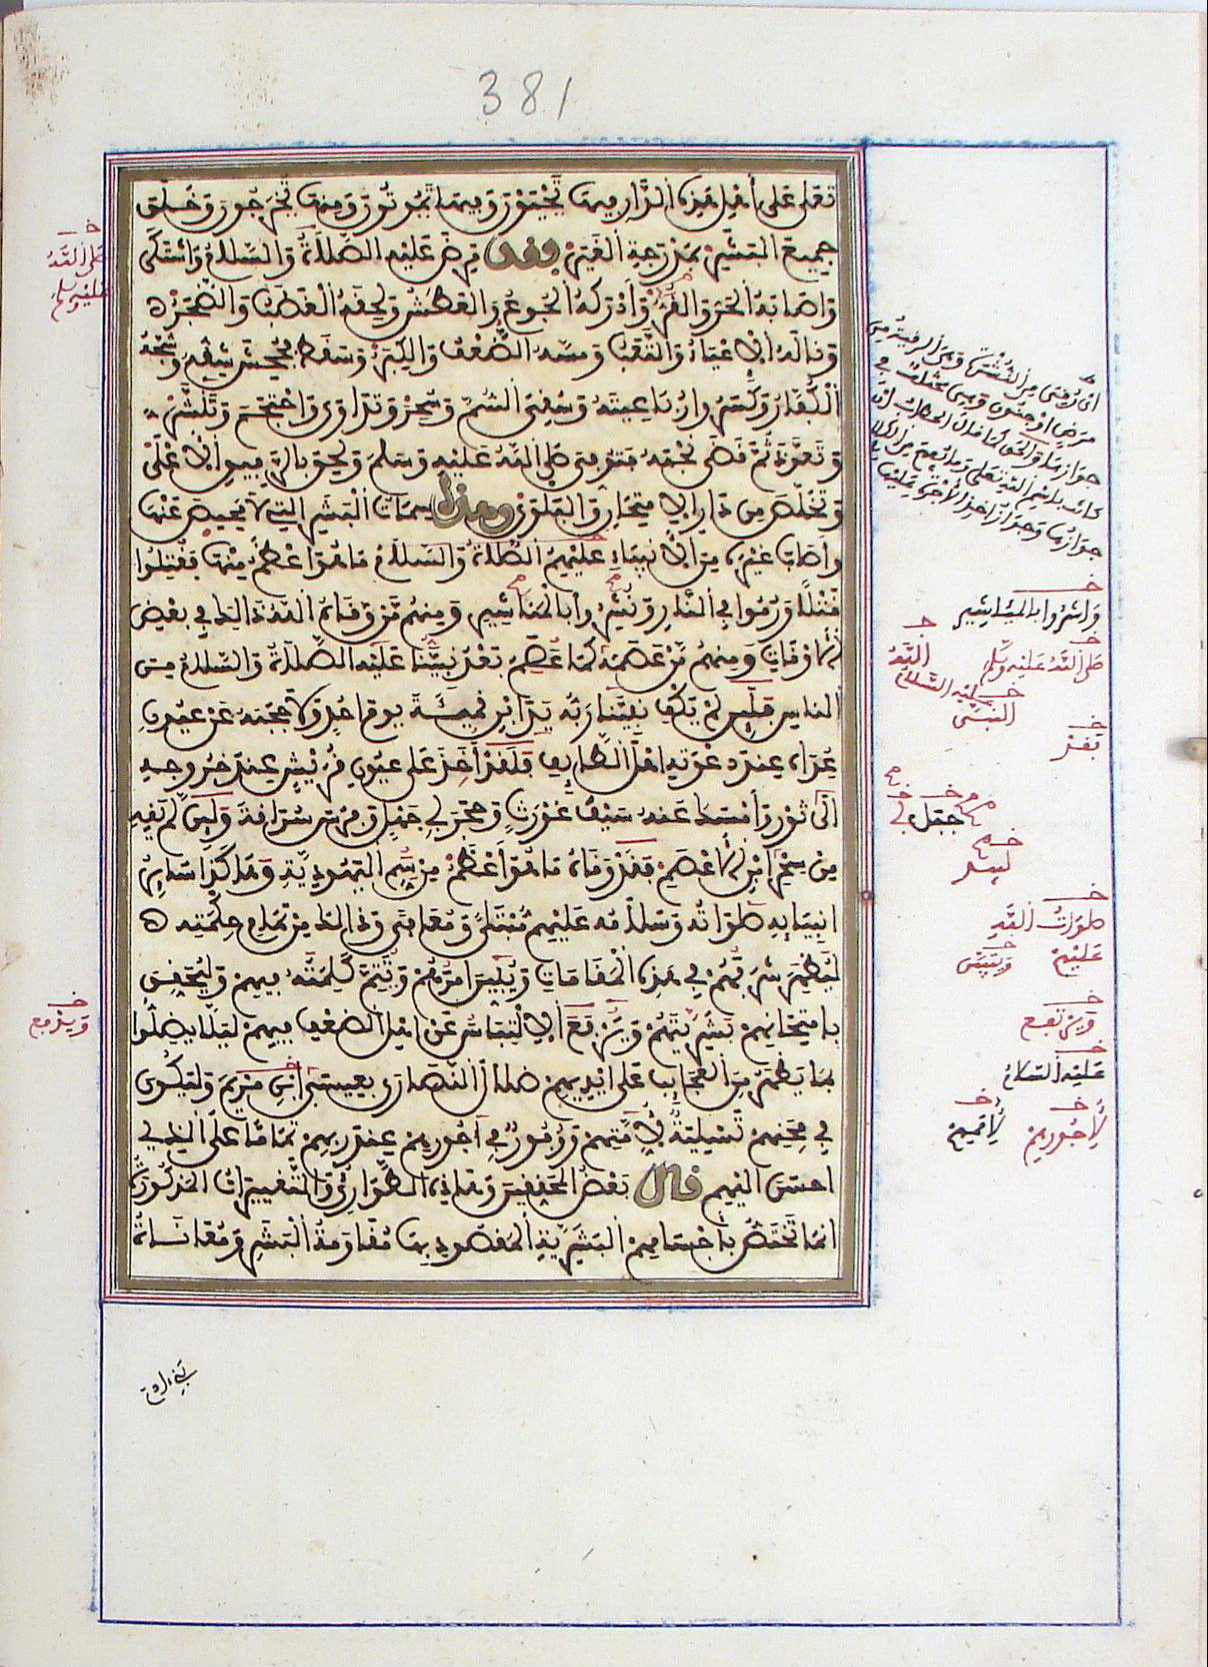 381
تعلى على أهل هذه الدار فيها تحيون وفيها تموتون ومنها تخرجون وخلق
جميع البشر بمدرجة الغير وقد مرض عليه الصلاة والسلام واشتكى
واصابه الحر والقر وأدركه الجوع والعطش ولحقه الغضب والضجر
وناله الاعياء والتعب ومسه الضعف والكبر وسقط فجحش شقه وشجه
الكفار وكسروا رباعيته وسقي السم وسحر وتداوى واحتجم وتنشر
وتعوذ ثم قضى نحبه فتوفي صلى الله عليه وسلم ولحق بالرفيق الاعلى
وتخلص من دار الامتحان والبلوى وهذه سمات البشر التي لا محيص عنها
واصاب غيره من الانبياء عليهم الصلاة والسلام ما هو أعظم منها فقتلوا
قتلا ورموا في النار ونشروا بالمناشير ومنهم من وقاه الله ذالك في بعض
الاوقات ومنهم من عصمه كما عصم بعد نبينا عليه الصلاة والسلام من
الناس فلين لم يكف نبينا ربه يد ابن قميئة يوم احد ولا حجبه عن عيون
عداه عند دعوته اهل الطايف فلقد أخذ على عيون قريش عند خروجه
الى ثور وأمسك عنه سيف غورث وحجر أبي جهل وفرس سراقة ولين لم يقه
من سحر ابن الاعصم فقد وقاه ما هو أعظم من سم اليهودية وهكذا ساير
انبيايه صلواته وسلامه عليهم مبتلى ومعافى وذالك من تمام حكمته
ليظهر شرفهم في هذه المقامات ويبين أمرهم ويتم كلمته فيهم وليحقق
بامتحانهم بشريتهم ويرتفع الالتباس عن اهل الضعف فيهم ليلا يضلوا
بما يظهر من العجايب على ايديهم ضلال النصارى بعيسى ابن مريم وليكون
في محنهم تسلية لأممهم ووفور في أجورهم عند ربهم تماما على الذي
احسن اليهم قال بعض المحققين وهذه الطوارئ والتغييرات المذكورة
انما تختص بأجسامهم البشرية المقصود بها مقاومة البشر ومعاناة
صلى الله
عليه وسلم
ويرفع
واشروا بالمياشير
صلى الله عليه وسلم
الله
عليه السلام
النبي
بعد
جهل
صلوات الله
عليهم
ويتبين
ويرتفع
عليه السلام
لأجورهم
لأممهم
بني ادم